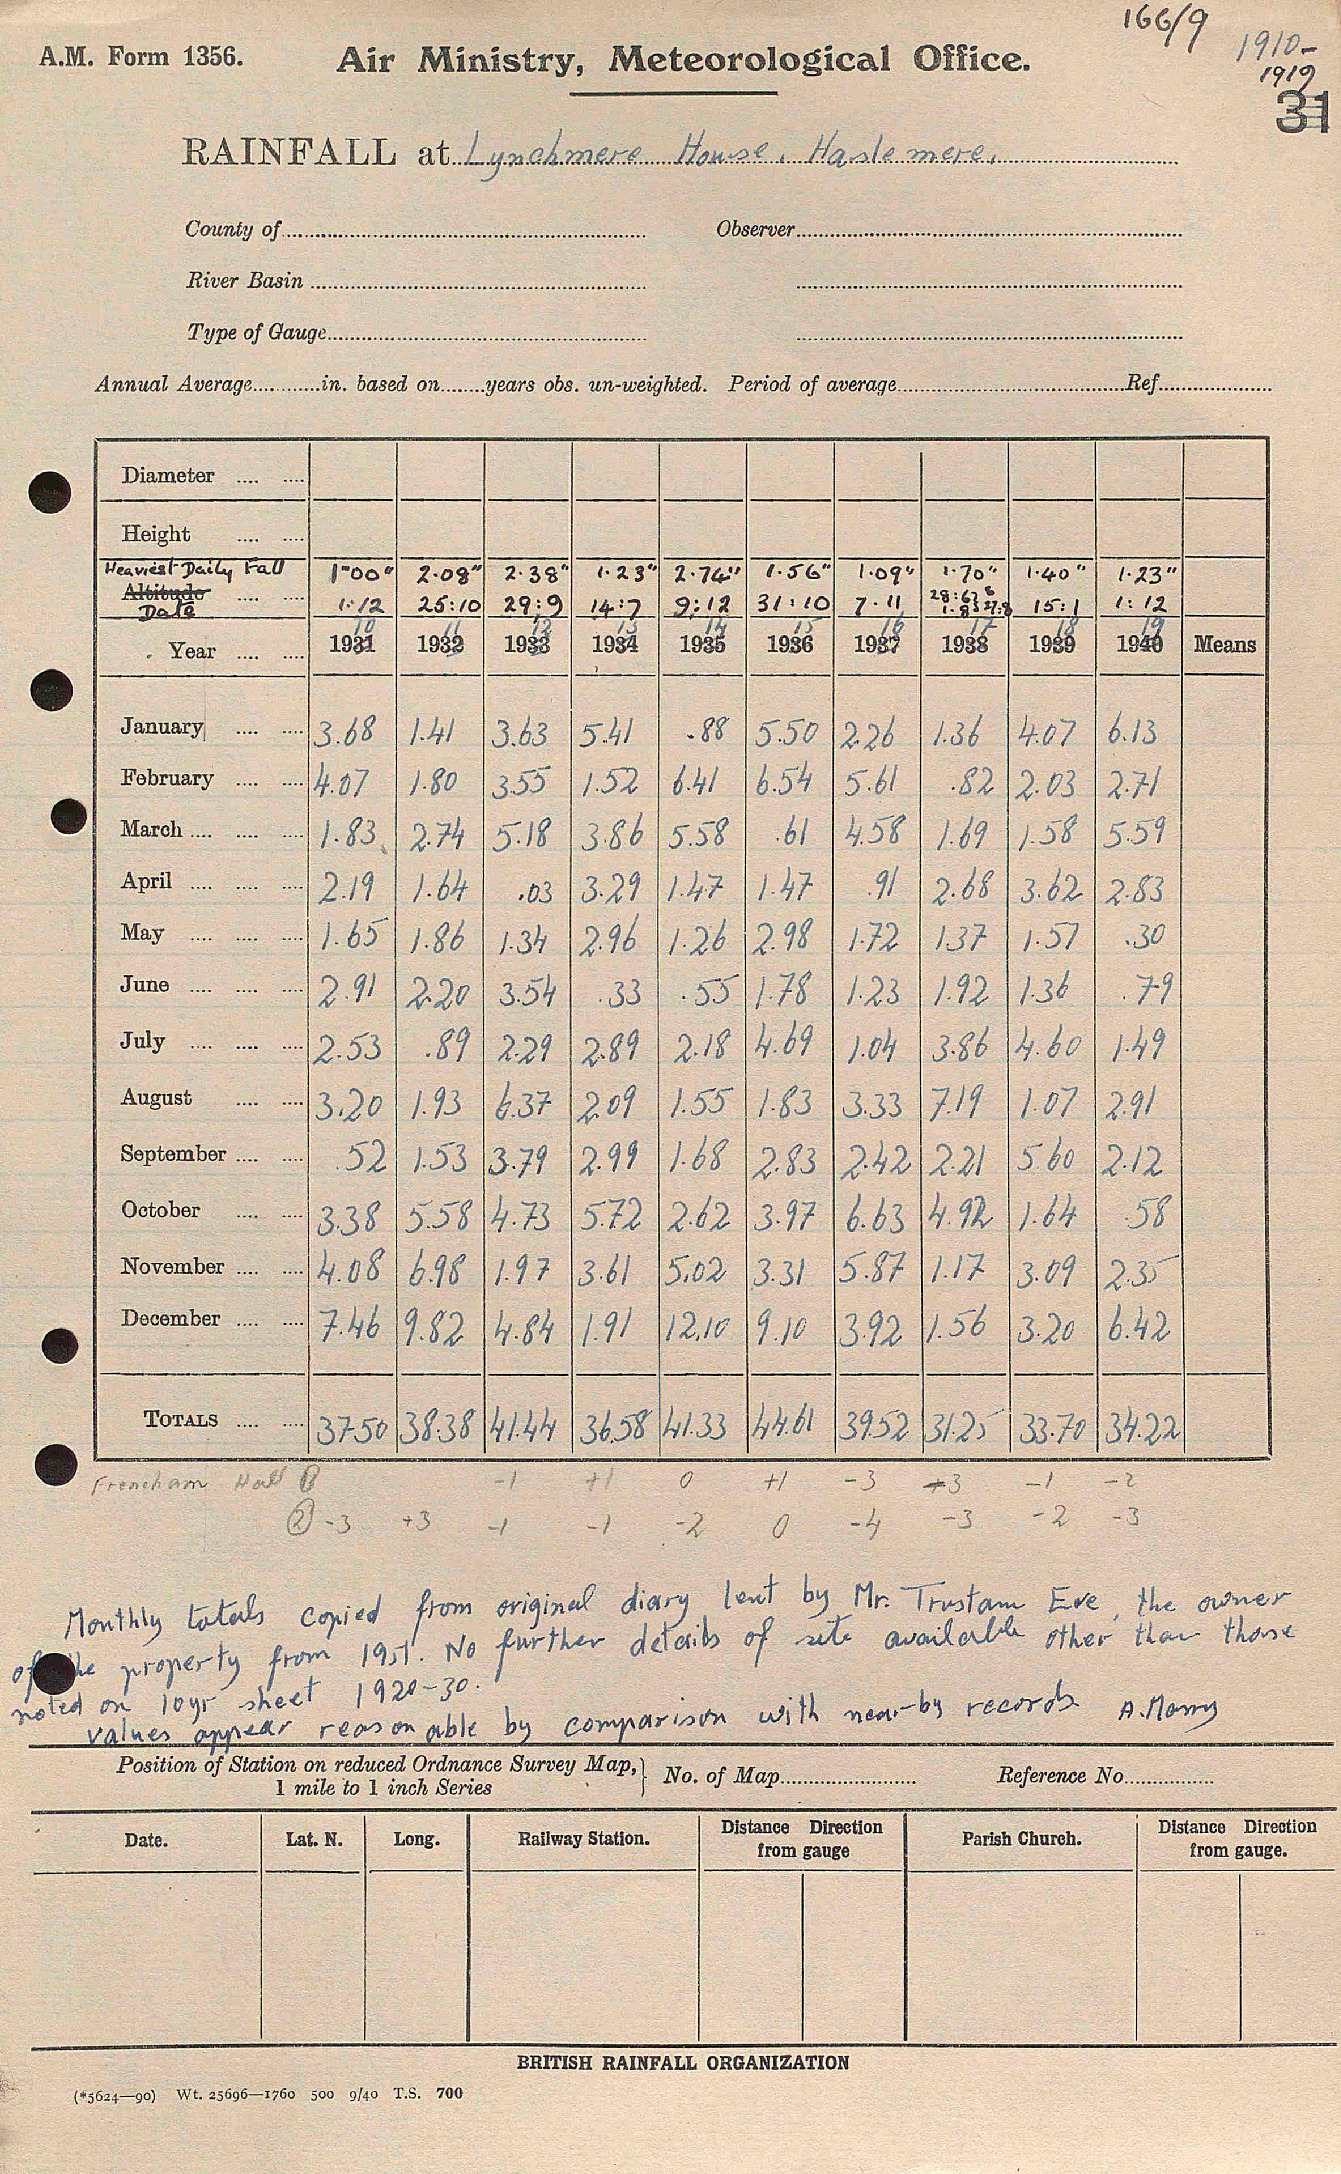 166/9
1910-
1919
31
A.M. Form 1356.
Air Ministry, Meteorological Office.
RAINFALL at Lynchmere House, Haslemere.
County of Observer
River Basin
Type of Gauge
Annual Average in. based on years obs. un-weighted. Period of average Ref
Diameter
Height
Heaviest Daily Fall 1"00" 2.08" 2.38" 1.23" 2.74" 1.56" 1.09" 1.70" 1.40" 1.23"
Altitude
Date 1:12 25:10 29:9 14:7 9:12 31:10 7.11 15:1 1:12
10 11 12 13 14 15 16 17 18 19
Year 1931 1932 1933 1934 1935 1936 1937 1938 1939 1940 Means
January 3.68 1.41 3.63 5.41 .88 5.50 2.26 1.36 4.07 6.13
February 4.07 1.80 3.55 1.52 6.41 6.54 5.61 .82 2.03 2.71
March 1.83 2.74 5.18 3.86 5.58 .61 4.58 1.69 1.58 5.59
April 2.19 1.64 .03 3.29 1.47 1.47 .91 2.68 3.62 2.83
May 1.65 1.86 1.34 2.96 1.26 2.98 1.72 1.37 1.57 .30
June 2.91 2.20 3.54 .33 .55 1.78 1.23 1.92 1.36 .79
July 2.53 .89 2.29 2.89 2.18 4.69 1.04 3.86 4.60 1.49
August 3.20 1.93 6.37 2.09 1.55 1.83 3.33 7.19 1.07 2.91
September .52 1.53 3.79 2.99 1.68 2.83 2.42 2.21 5.60 2.12
October 3.38 5.58 4.73 5.72 2.62 3.97 6.63 4.92 1.64 .58
November 4.08 6.98 1.97 3.61 5.02 3.31 5.87 1.17 3.09 2.35
December 7.46 9.82 4.84 1.91 12.10 9.10 3.92 1.56 3.20 6.42
TOTALS 37.50 38.38 41.44 36.58 41.33 44.61 39.52 31.25 33.70 34.22
Frencham Hall 1 -1 +1 0 +1 -3 +3 -1 -2
2 -3 +3 -1 -1 -2 0 -4 -3 -2 -3
Monthly totals copied from original diary lent by Mr. Trustam Eve, the owner
of the property from 1951. No further details of site available other than those
noted on 10yr sheet 1920-30.
Values appear reasonable by comparison with near-by records
Position of Station on reduced Ordnance Survey Map,
1 mile to 1 inch Series
No. of Map Reference No.
Date. Lat. N. Long. Railway Station. Distance from gauge Direction Parish Church. Distance Direction from gauge.
BRITISH RAINFALL ORGANIZATION
(*5624—90) Wt. 25696—1760 500 9/40 T.S. 700